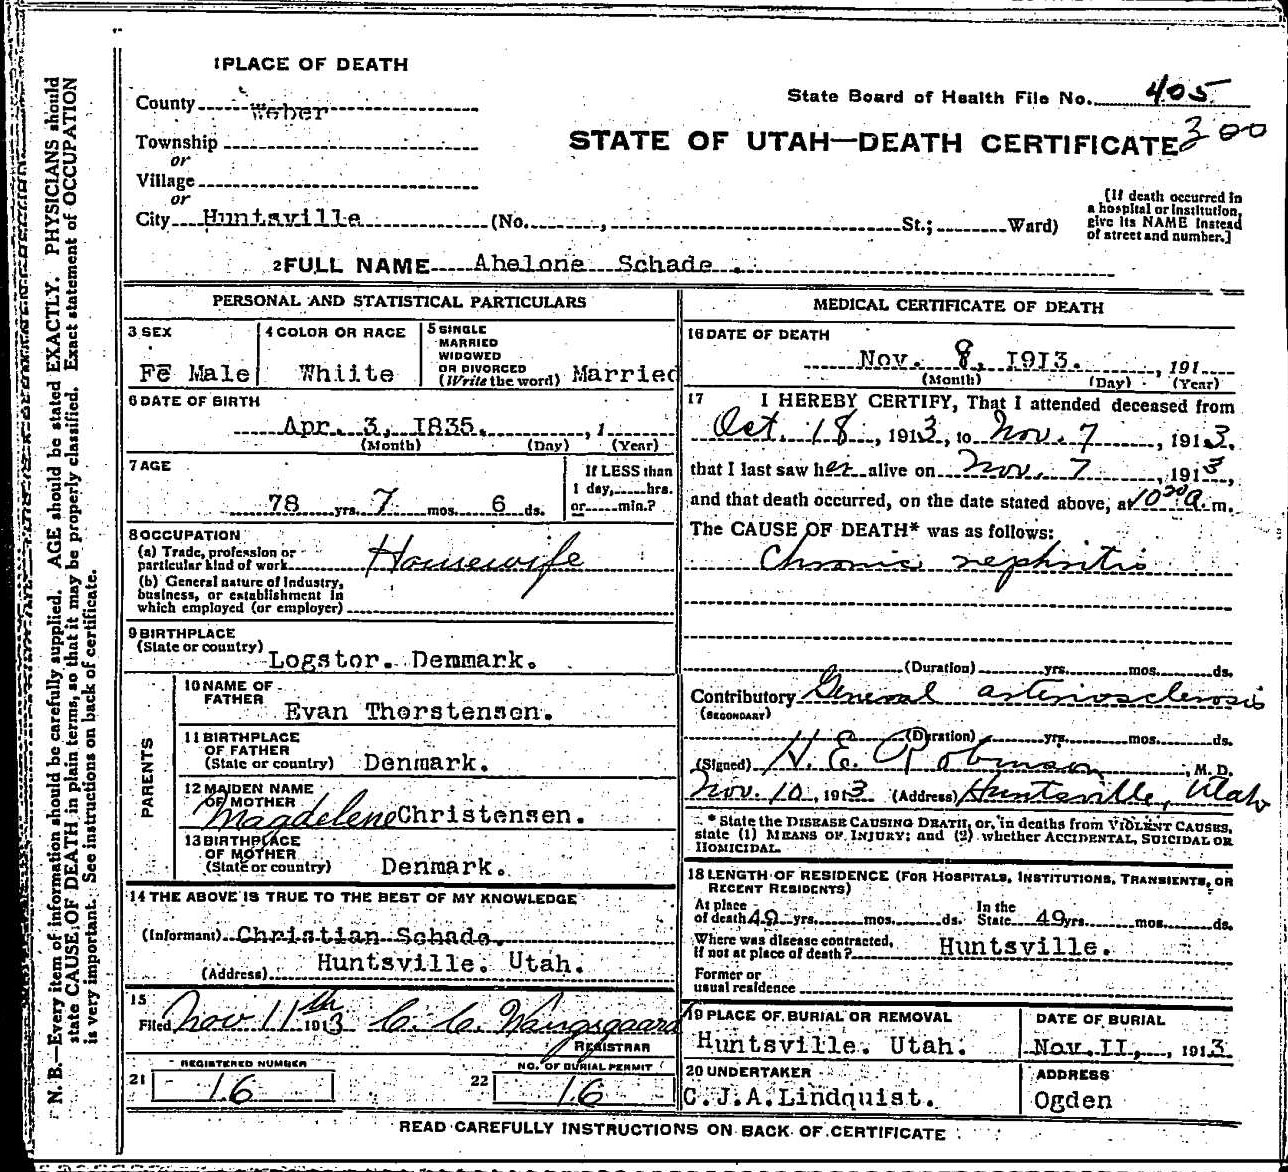 1 PLACE OF DEATH
County Weber
State Board of Health File No. 405
Township
or
STATE OF UTAH—DEATH CERTIFICATE 300
Village
or
City Huntsville (No. , St.; Ward)
[If death occurred in
a hospital or institution,
give its NAME instead
of street and number.]
2 FULL NAME Abelone Schade .
PERSONAL AND STATISTICAL PARTICULARS
3 SEX
Fe Male
4 COLOR OR RACE
Whiite
5 SINGLE
MARRIED
WIDOWED
OR DIVORCED
(Write the word) Married
6 DATE OF BIRTH
Apr. 3, 1835. , 1
(Month) (Day) (Year)
7 AGE
78 yrs. 7 mos. 6 ds.
If LESS than
1 day, hrs.
or min.?
8 OCCUPATION
(a) Trade, profession or
particular kind of work Housewife
(b) General nature of Industry,
business, or establishment in
which employed (or employer)
9 BIRTHPLACE
(State or country) Logstor. Denmark.
PARENTS
10 NAME OF
FATHER
Evan Thorstensen.
11 BIRTHPLACE
OF FATHER
(State or country) Denmark.
12 MAIDEN NAME
OF MOTHER
Magdelene Christensen.
13 BIRTHPLACE
OF MOTHER
(State or country) Denmark.
14 THE ABOVE IS TRUE TO THE BEST OF MY KNOWLEDGE
(Informant) Christian Schade.
(Address) Huntsville. Utah.
15
Filed Nov 11th 1913 C. C. Wangsgaard
REGISTRAR
REGISTERED NUMBER
21 16
NO. OF BURIAL PERMIT
22 16
MEDICAL CERTIFICATE OF DEATH
16 DATE OF DEATH
Nov. 8, 1913. , 191
(Month) (Day) (Year)
17 I HEREBY CERTIFY, That I attended deceased from
Oct. 18, 1913, to Nov. 7, 1913.
that I last saw her alive on Nov. 7, 1913,
and that death occurred, on the date stated above, at 10 20 a. m.
The CAUSE OF DEATH* was as follows:
Chronic nephritis
(Duration) yrs. mos. ds.
Contributory General arteriosclerosis
(SECONDARY)
(Duration) yrs. mos. ds.
(Signed) H. E. Robinson, M. D.
Nov. 10, 1913 (Address) Huntsville, Utah
* State the DISEASE CAUSING DEATH, or, in deaths from VIOLENT CAUSES,
state (1) MEANS OF INJURY; and (2) whether ACCIDENTAL, SUICIDAL OR
HOMICIDAL.
18 LENGTH OF RESIDENCE (FOR HOSPITALS, INSTITUTIONS, TRANSIENTS, OR
RECENT RESIDENTS)
At place
of death 49 yrs. mos. ds.
In the
State 49 yrs. mos. ds.
Where was disease contracted,
if not at place of death? Huntsville.
Former or
usual residence
19 PLACE OF BURIAL OR REMOVAL
Huntsville. Utah.
DATE OF BURIAL
Nov. II, , 1913
20 UNDERTAKER
C.J.A.Lindquist.
ADDRESS
Ogden
READ CAREFULLY INSTRUCTIONS ON BACK OF CERTIFICATE
N. B.—Every item of information should be carefully supplied. AGE should be stated EXACTLY. PHYSICIANS should
state CAUSE OF DEATH in plain terms, so that it may be properly classified. Exact statement of OCCUPATION
is very important. See instructions on back of certificate.